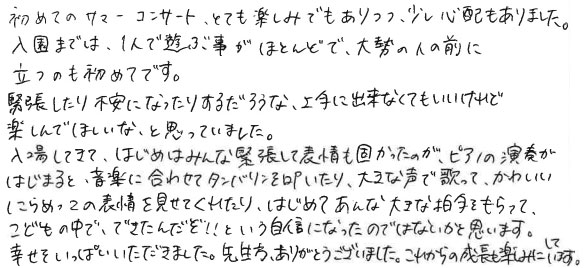 初めてのサマーコンサート、とても楽しみでもありつつ、少し心配もありました。
入園までは、1人で遊ぶ事がほとんどで、大勢の人の前に
立つのも初めてです。
緊張したり不安になったりするだろうな、上手に出来なくてもいいけれど
楽しんでほしいな、と思っていました。
入場してきて、はじめはみんな緊張して表情も固かったのが、ピアノの演奏が
はじまると、音楽に合わせてタンバリンを叩いたり、大きな声で歌って、かわいい
にらめっこの表情を見せてくれたり、はじめてあんな大きな拍手をもらって、
こどもの中で、できたんだぞ!!という自信になったのではないかと思います。
幸せをいっぱいいただきました。先生方、ありがとうございました。これからの成長も楽しみにしています。